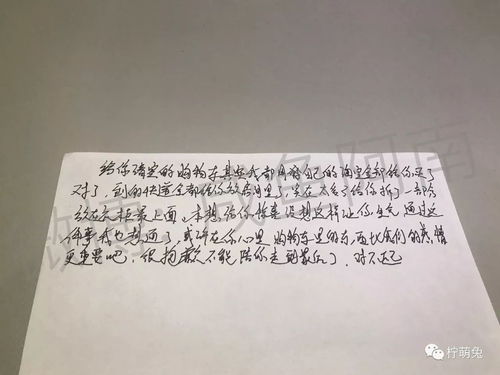 给你清空的购物车其实我都用自己的淘宝全部给你买了
对了，到的快递全部给你放房里了，实在太多了给你拆了一部分
放在衣柜最上面，本想给你惊喜没想这样让你生气通过这
件事我也想通了，或许在你心里 购物车里的东西比我们的感情
更重要吧，很抱歉不能陪你走到最后了，对不起
微博 咸鱼阿南
柠萌兔